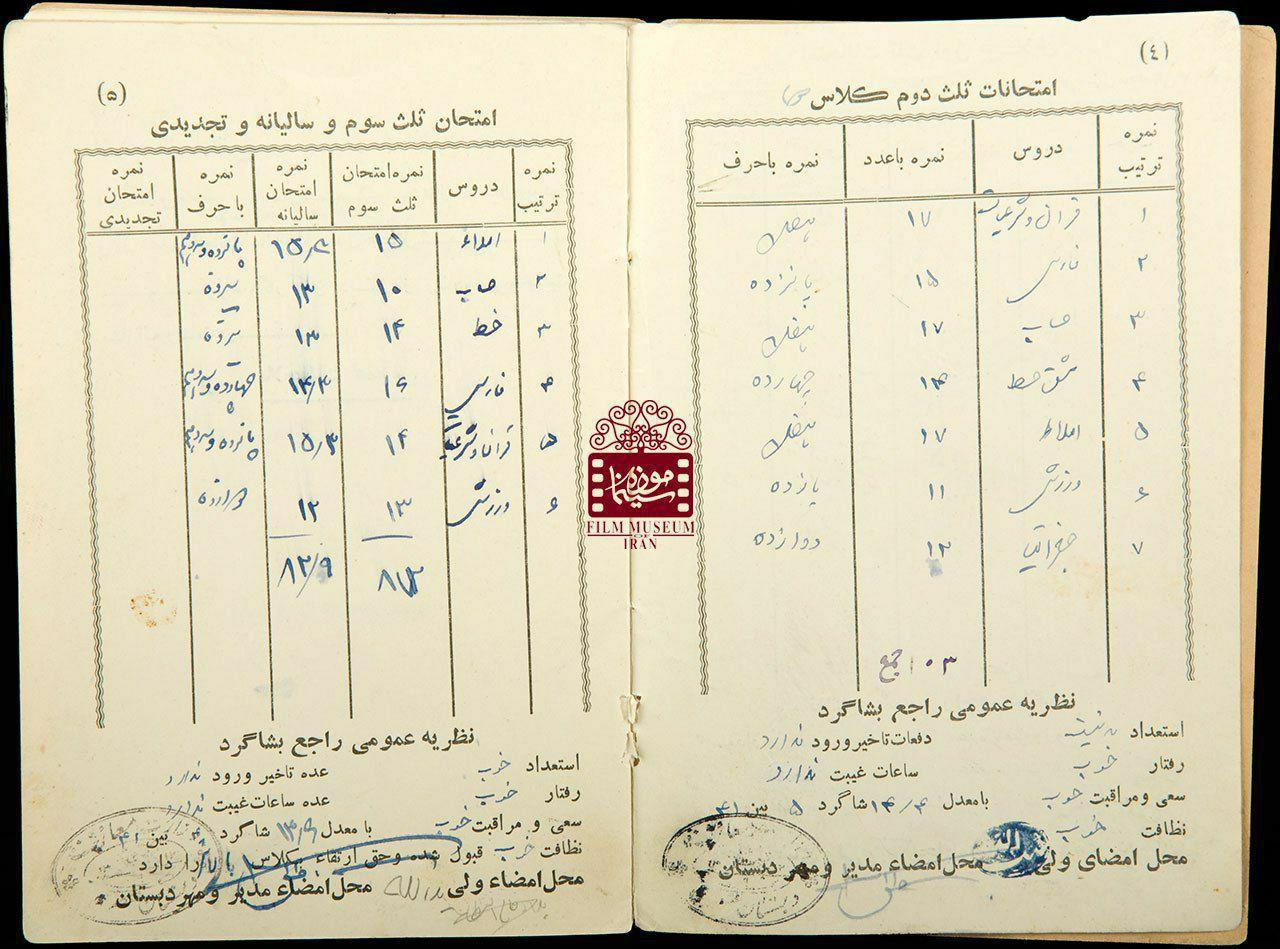 (٤)
امتحانات ثلث دوم کلاس
نمره ترتیب دروس نمره باعدد نمره باحرف
۱ قرآن و شرعیات ۱۷ هفده
۲ فارسی ۱۵ پانزده
۳ حساب ۱۷ هفده
۴ مشق خط ۱۴ چهارده
۵ املاء ۱۷ هفده
۶ ورزش ۱۱ یازده
۷ جغرافیا ۱۲ دوازده
جمع ۱۰۳
نظریه عمومی راجع بشاگرد
استعداد بد نیست دفعات تاخیر ورود ندارد
رفتار خوب ساعات غیبت ندارد
سعی و مراقبت خوب بامعدل ۱۴/۴ شاگرد ۵ بین ۴۱
نظافت خوب
محل امضای ولی محل امضاء مدیر و مهر دبستان
(۵)
امتحان ثلث سوم و سالیانه و تجدیدی
نمره ترتیب دروس نمره امتحان ثلث سوم نمره امتحان سالیانه نمره باحرف نمره امتحان تجدیدی
۱ املاء ۱۵
۲ حساب ۱۰ ۱۳ سیزده
۳ خط ۱۴ ۱۳ سیزده
۴ فارسی ۱۶ ۱۴/۳
۵ قرآن و شرعیات ۱۴ ۱۵/۳
۶ ورزش ۱۳ ۱۲ دوازده
۸۲/۹
نظریه عمومی راجع بشاگرد
استعداد خوب عده تاخیر ورود ندارد
رفتار خوب عده ساعات غیبت ندارد
سعی و مراقبت خوب با معدل شاگرد بین ۴۱
نظافت خوب قبول شده و حق ارتقاء بکلاس را دارد
محل امضاء ولی محل امضاء مدیر و مهر دبستان
موزه سینما
FILM MUSEUM
OF
IRAN